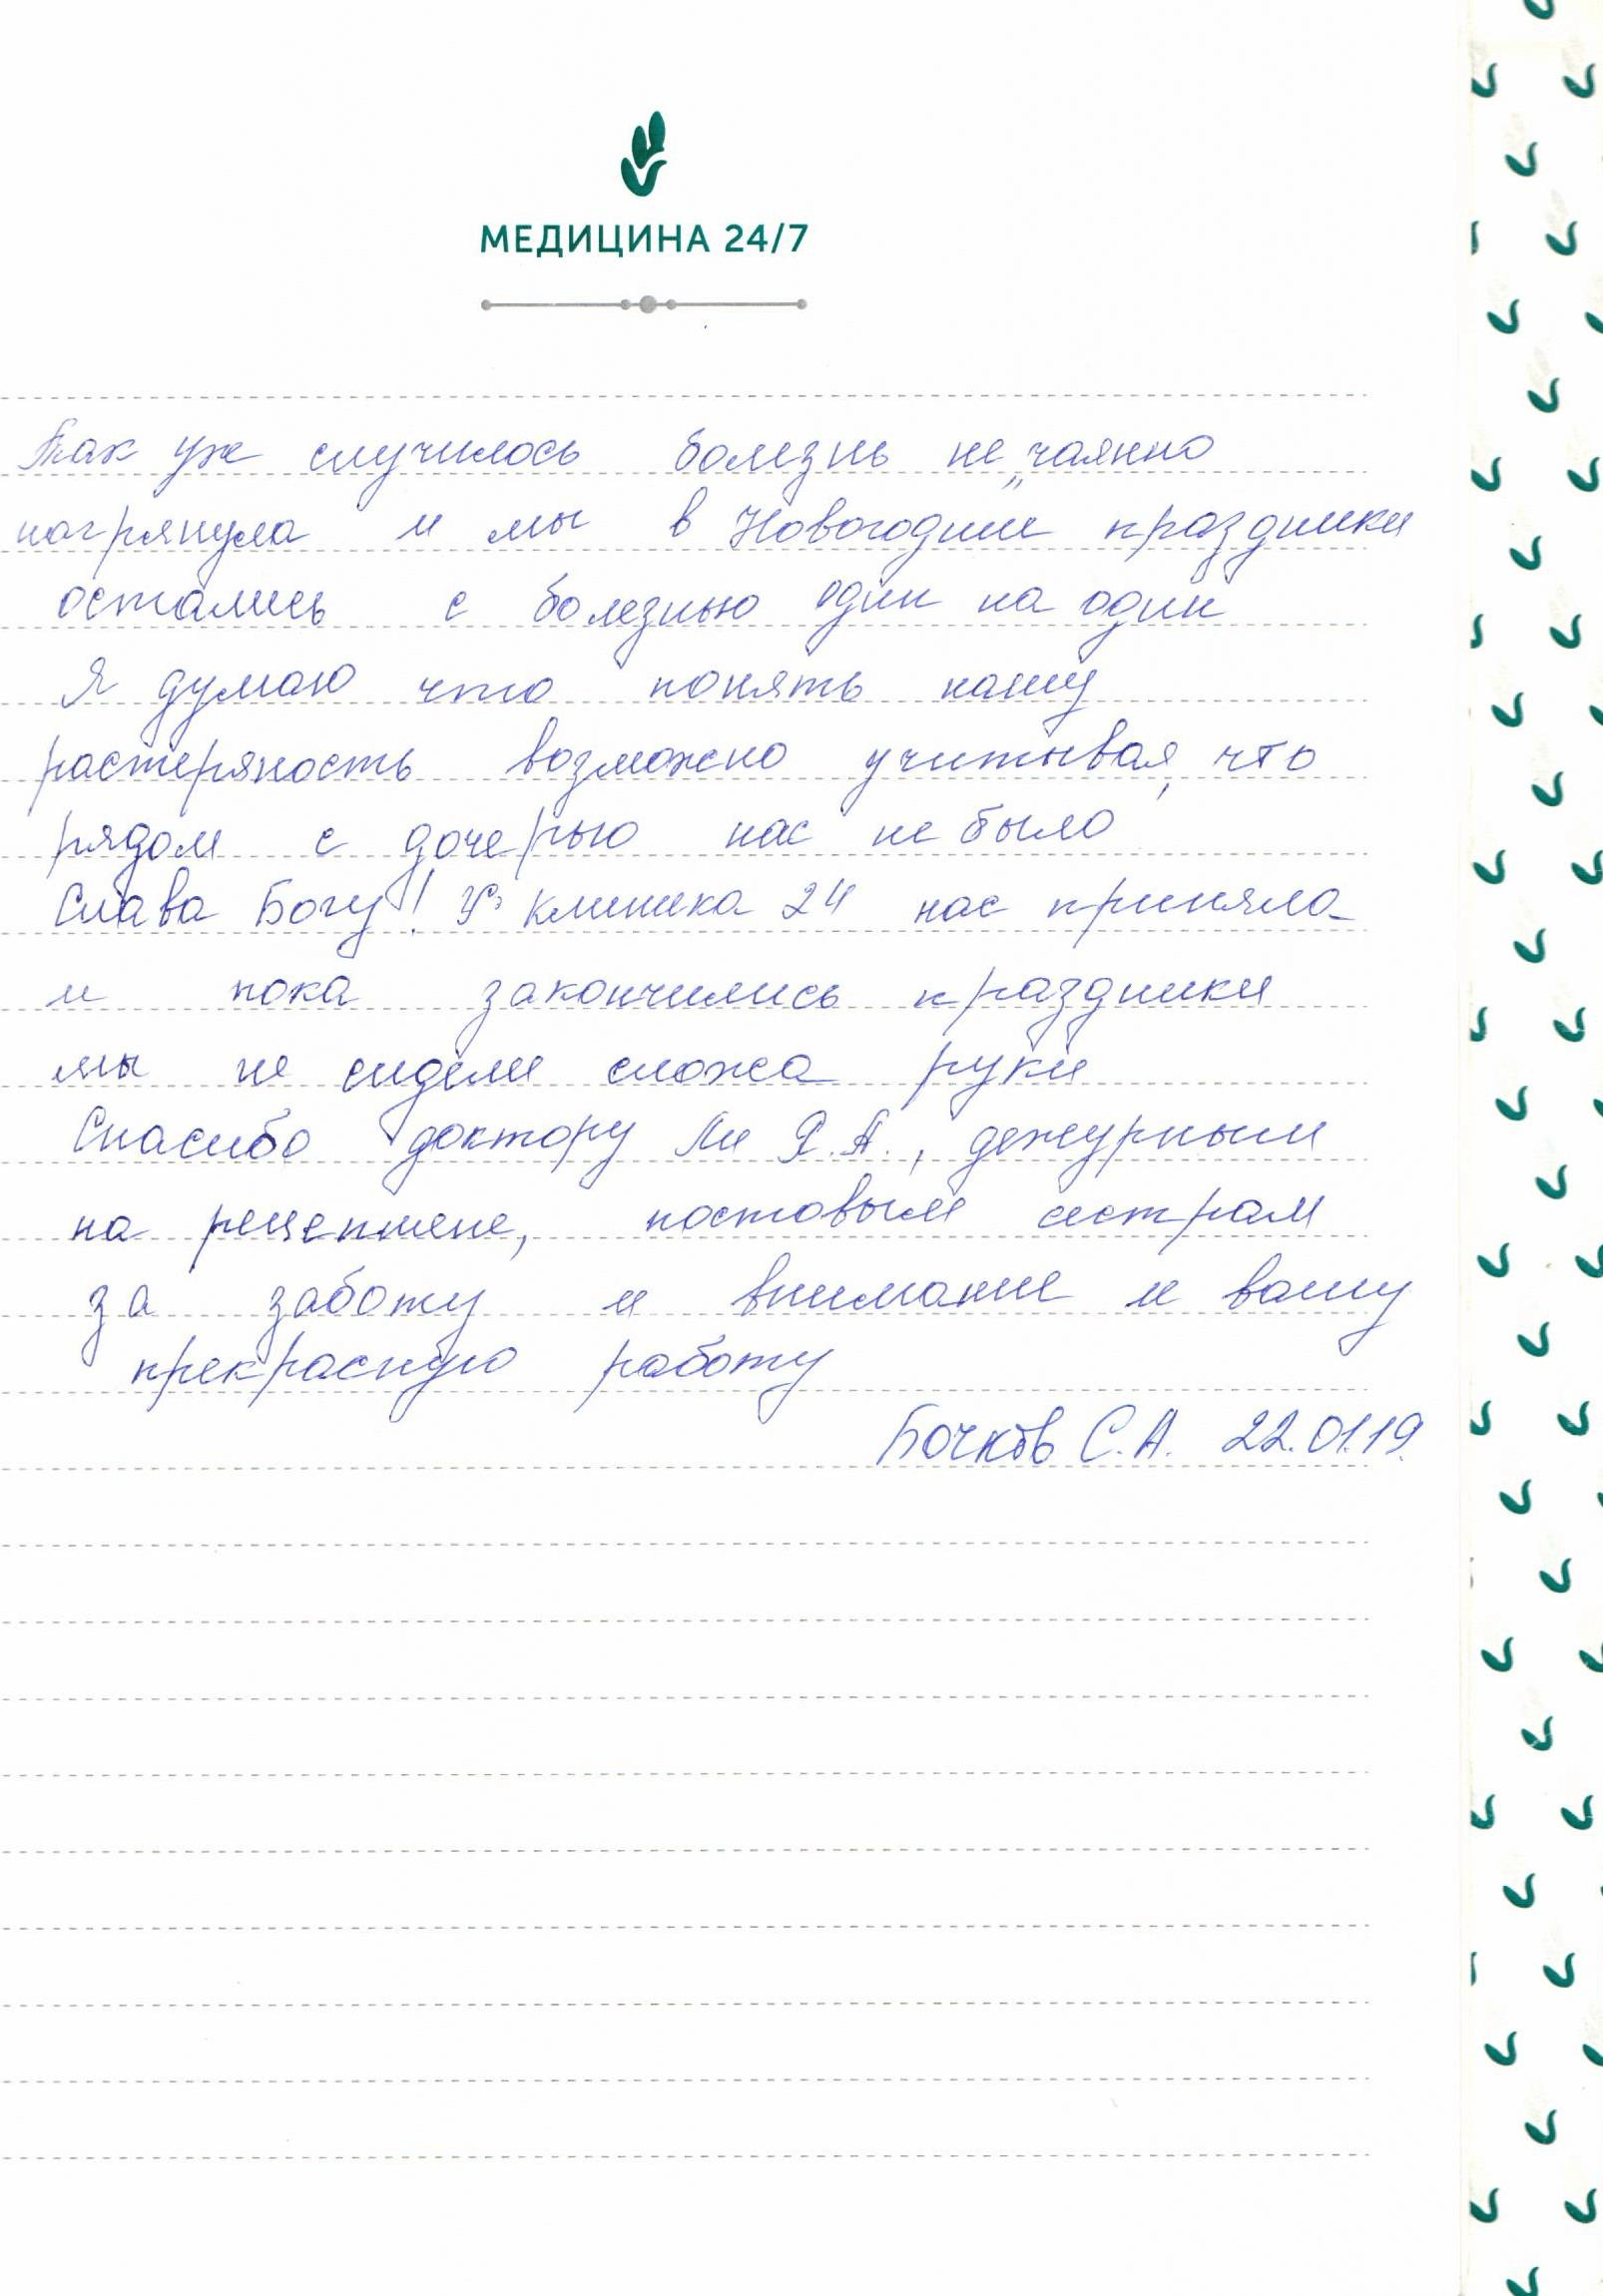 МЕДИЦИНА 24/7
Так уж случилось болезнь не„чаянно
нагрянула и мы в Новогодние праздники
остались с болезнью один на один
Я думаю что понять нашу
растеряность возможно учитывая, что
рядом с дочерью нас не было
Слава Богу! клиника 24 нас приняла
и пока закончились праздники
мы не сидели сложа руки
Спасибо доктору Ли Я.А., дежурным
на рецепшене, постовым сестрам
за заботу и внимание и вашу
прекрасную работу
Бочков С.А. 22.01.19.